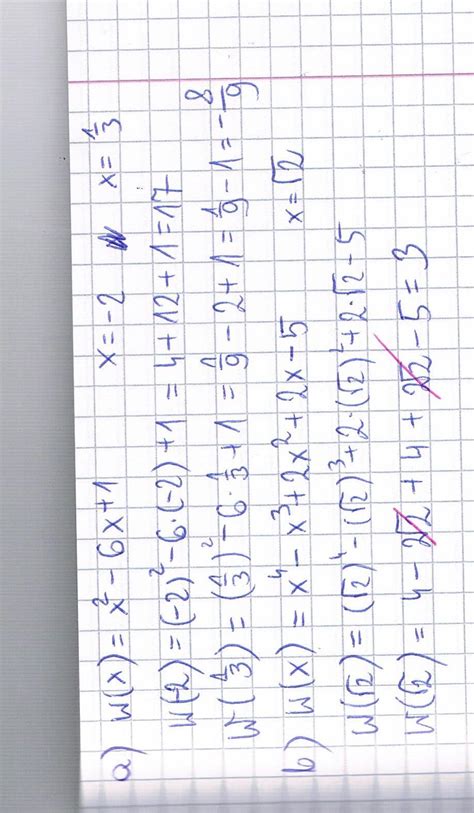 a) W(x) = x² - 6x + 1   x = -2   x = 1/3
W(-2) = (-2)² - 6·(-2) + 1 = 4 + 12 + 1 = 17
W(1/3) = (1/3)² - 6·1/3 + 1 = 1/9 - 2 + 1 = 1/9 - 1 = -8/9
b) W(x) = x⁴ - x³ + 2x² + 2x - 5   x = √2
W(√2) = (√2)⁴ - (√2)³ + 2·(√2)² + 2·√2 - 5
W(√2) = 4 - 2√2 + 4 + 2√2 - 5 = 3